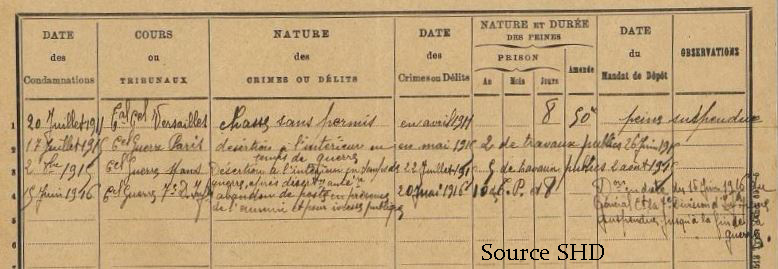 DATE des Condamnations COURS ou TRIBUNAUX NATURE des CRIMES OU DÉLITS DATE des Crimes ou Délits NATURE ET DURÉE DES PEINES PRISON An Mois Jours Amende DATE du Mandat de Dépôt OBSERVATIONS
1 20 Juillet 1911 Versailles chasse sans permis en avril 1911 8 50 peine suspendue
2 17 Juillet 1915 Guerre Paris désertion à l'intérieur en temps de guerre en mai 1915 2 de travaux publics 26 Juin 1915
3 1915 Guerre Mans Désertion à l'intérieur en temps de guerre, après désert. antér. 22 Juillet 1915 5 de travaux publics 2 aout 1915
4 15 Juin 1916 Guerre 7e abandon de poste en présence de l'ennemi et pour ivresse publique 20 mai 1916 10 et 8 en date du 16 Juin 1916 du Général suspendue jusqu'à la fin de la guerre
5
6
Source SHD